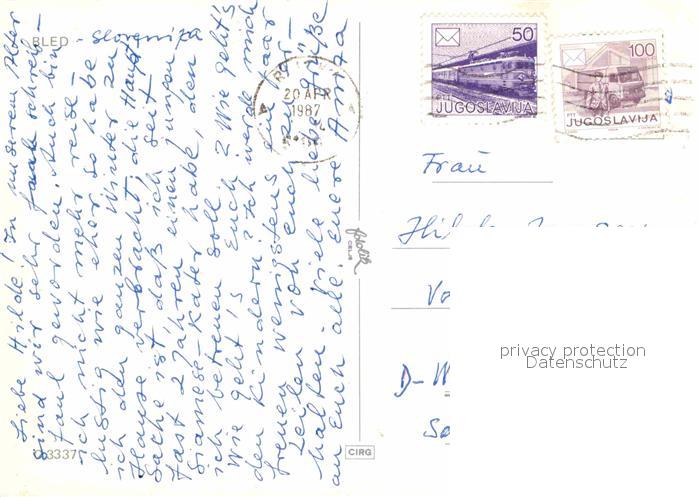 BLED - Slovenija
Liebe Hilde! In unserem Alter
sind wir sehr faul schreib-
faul geworden. Auch bin
ich nicht mehr reise-
lustig wie eher so habe
ich den ganzen Winter zu
Hause verbracht, die Haupt
Sache ist daß ich seit
fast 2 Jahren einen jungen
Siamese-Kater habe, den
ich betreuen soll.
Wie geht's Euch? Wie geht's
den Kindern? Ich werde mich
freuen wenigstens ein paar
Zeilen von Euch zu er-
halten. Viele liebe Grüße
an Euch alle. Eure
C 3337
fotolik
CELJE
CIRG
20 APR
1987
50
PTT JUGOSLAVIJA
100
PTT
JUGOSLAVIJA
Frau
D-
privacy protection
Datenschutz